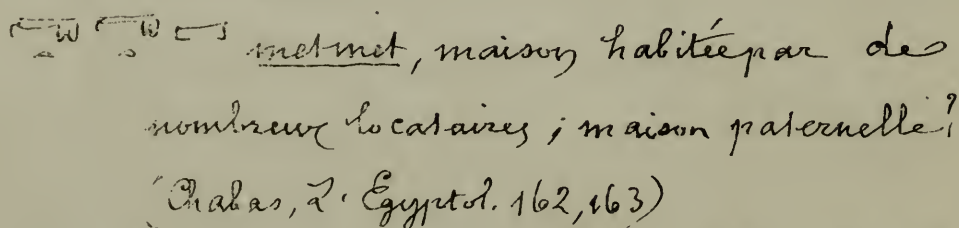 metmet, maison habitée par de
nombreux locataires ; maison paternelle?
(Chabas, L'Egyptol. 162, 163)